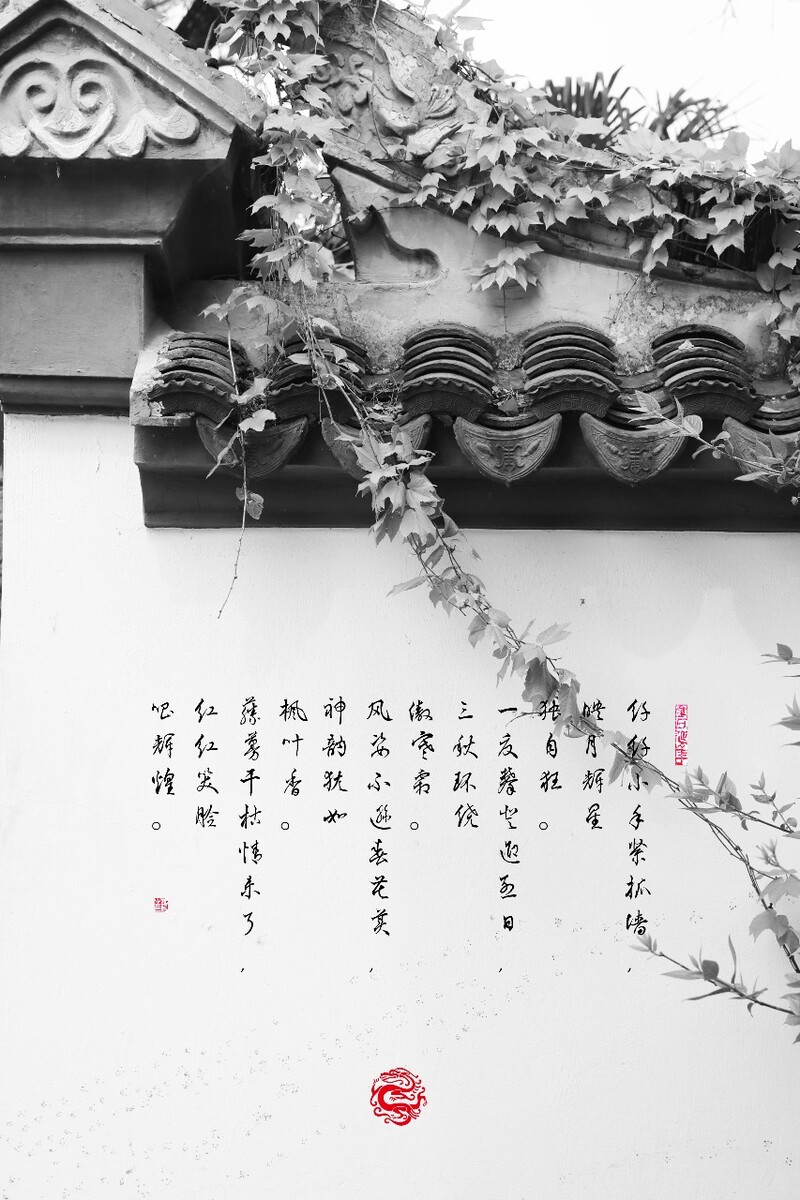 纤纤小手紧抓墙,
映月辉星
独自狂。
一度攀登迎烈日,
三秋环绕
傲寒霜。
风姿不逊春花美,
神韵犹如
枫叶香。
藤蔓干枯情未了,
红红笑脸
也辉煌。